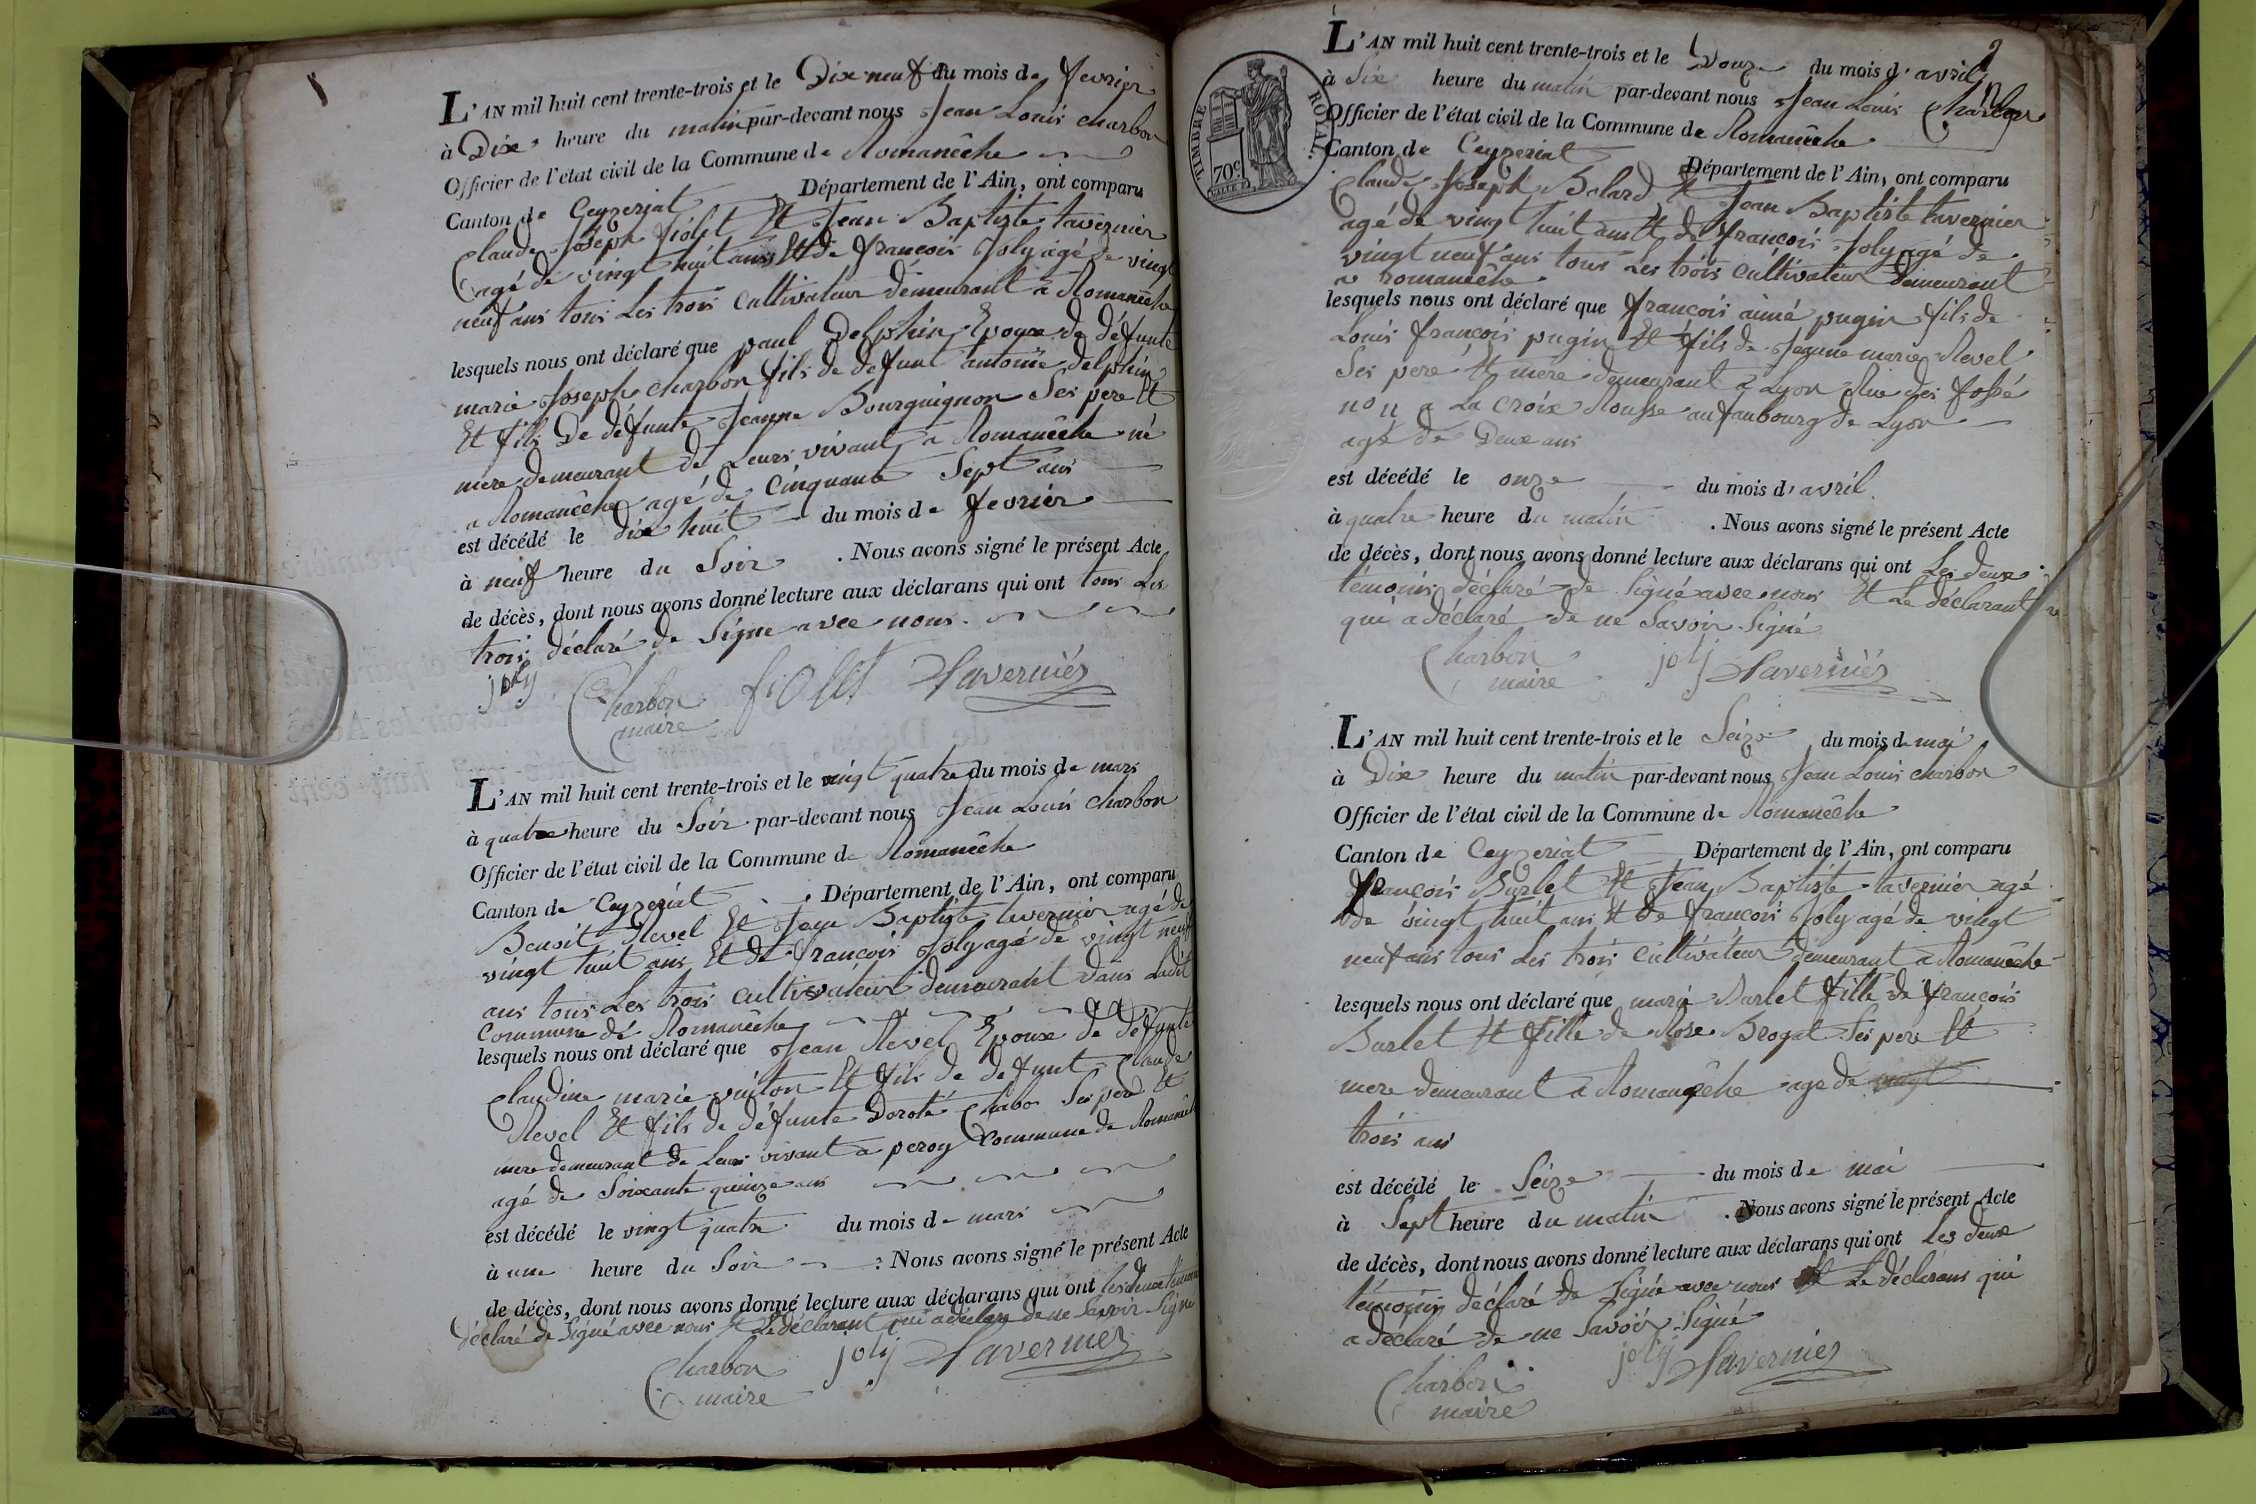 L'AN mil huit cent trente-trois et le Dix neuf du mois de fevrier
à Dix heure du matin par-devant nous Jean Louis charbon
Officier de l'état civil de la Commune de Romanêche
Canton de Ceyzeriat Département de l'Ain, ont comparu
Claude Joseph fiolet Et Jean Baptiste tavernier
agé de vingt huit ans Et de françois Joly agé de vingt
neuf ans tous Les trois cultivateur demeurant a Romanêche
lesquels nous ont déclaré que paul Delphin Epoux de défunte
marie Joseph charbon fils de defunt antoine delphin
Et fils De défunte Jeanne Bourguignon Ses pere Et
mere demeurant de Leurs vivant a Romanêche né
a Romanêche agé de cinquante Sept ans
est décédé le dix huit du mois de fevrier
à neuf heure du Soir . Nous avons signé le présent Acte
de décès, dont nous avons donné lecture aux déclarans qui ont tous Les
trois déclaré de Signe avec nous
joly Charbon fiollet Tavernier
maire
L'AN mil huit cent trente-trois et le vingt quatre du mois de mars
à quatre heure du Soir par-devant nous Jean Louis charbon
Officier de l'état civil de la Commune de Romanêche
Canton de Ceyzeriat . Département de l'Ain, ont comparu
Benoit Revel Et Jean Baptiste tavernier agé de
vingt huit ans Et de françois Joly agé de vingt neuf
ans tous Les trois cultivateur demeurant dans Ladit
commune de Romanêche
lesquels nous ont déclaré que Jean Revel Epoux de défunte
Claudine marie vuiton Et fils de defunt Claude
Revel Et fils de défunte Doroté Chabo Ses pere Et
mere demeurant de Leur vivant a peroy commune de Romanêche
agé de Soixante quinze ans
est décédé le vingt quatre du mois de mars
à une heure du Soir : Nous avons signé le présent Acte
de décès, dont nous avons donné lecture aux déclarans qui ont les deux témoins
déclaré de Signé avec nous Et Le déclarant qui a déclaré de ne Savoir Signe
Charbon joly Tavernier
maire
2
TIMBRE ROYAL.
70c
L'AN mil huit cent trente-trois et le Douze du mois d'avril
à Six heure du matin par-devant nous Jean Louis Charbon
Officier de l'état civil de la Commune de Romanêche
Canton de Ceyzeriat Département de l'Ain, ont comparu
Claude Joseph Balard Et Jean Baptiste tavernier
agé de vingt huit ans Et de françois Joly agé de
vingt neuf ans tous Les trois cultivateur demeurant
a romanêche
lesquels nous ont déclaré que françois aimé pugin fils de
Louis françois pugin Et fils de Jeanne marie Revel
Ses pere Et mere demeurant a Lyon Rue des fossé
no 11 a La croix Rousse au faubourg de Lyon
agé de Deux ans
est décédé le onze du mois d'avril
à quatre heure du matin . Nous avons signé le présent Acte
de décès, dont nous avons donné lecture aux déclarans qui ont Les deux
témoins déclaré de Signé avec nous Et Le déclarant
qui a déclaré de ne Savoir Signé
Charbon joly Tavernier
maire
L'AN mil huit cent trente-trois et le Seize du mois de mai
à Dix heure du matin par-devant nous Jean Louis charbon
Officier de l'état civil de la Commune de Romanêche
Canton de Ceyzeriat Département de l'Ain, ont comparu
françois Burlet Et Jean Baptiste tavernier agé
de vingt huit ans Et de françois Joly agé de vingt
neuf ans tous Les trois cultivateur demeurant a Romanêche
lesquels nous ont déclaré que marie Burlet fille de françois
Burlet Et fille de Rose Brogat Ses pere Et
mere demeurant a Romanêche age de vingt
trois ans
est décédé le Seize du mois de mai
à Sept heure du matin . Nous avons signé le présent Acte
de décès, dont nous avons donné lecture aux déclarans qui ont Les deux
témoins déclaré de Signé avec nous Et Le déclarans qui
a déclaré de ne Savoir Signé
Charbon joly Tavernier
maire